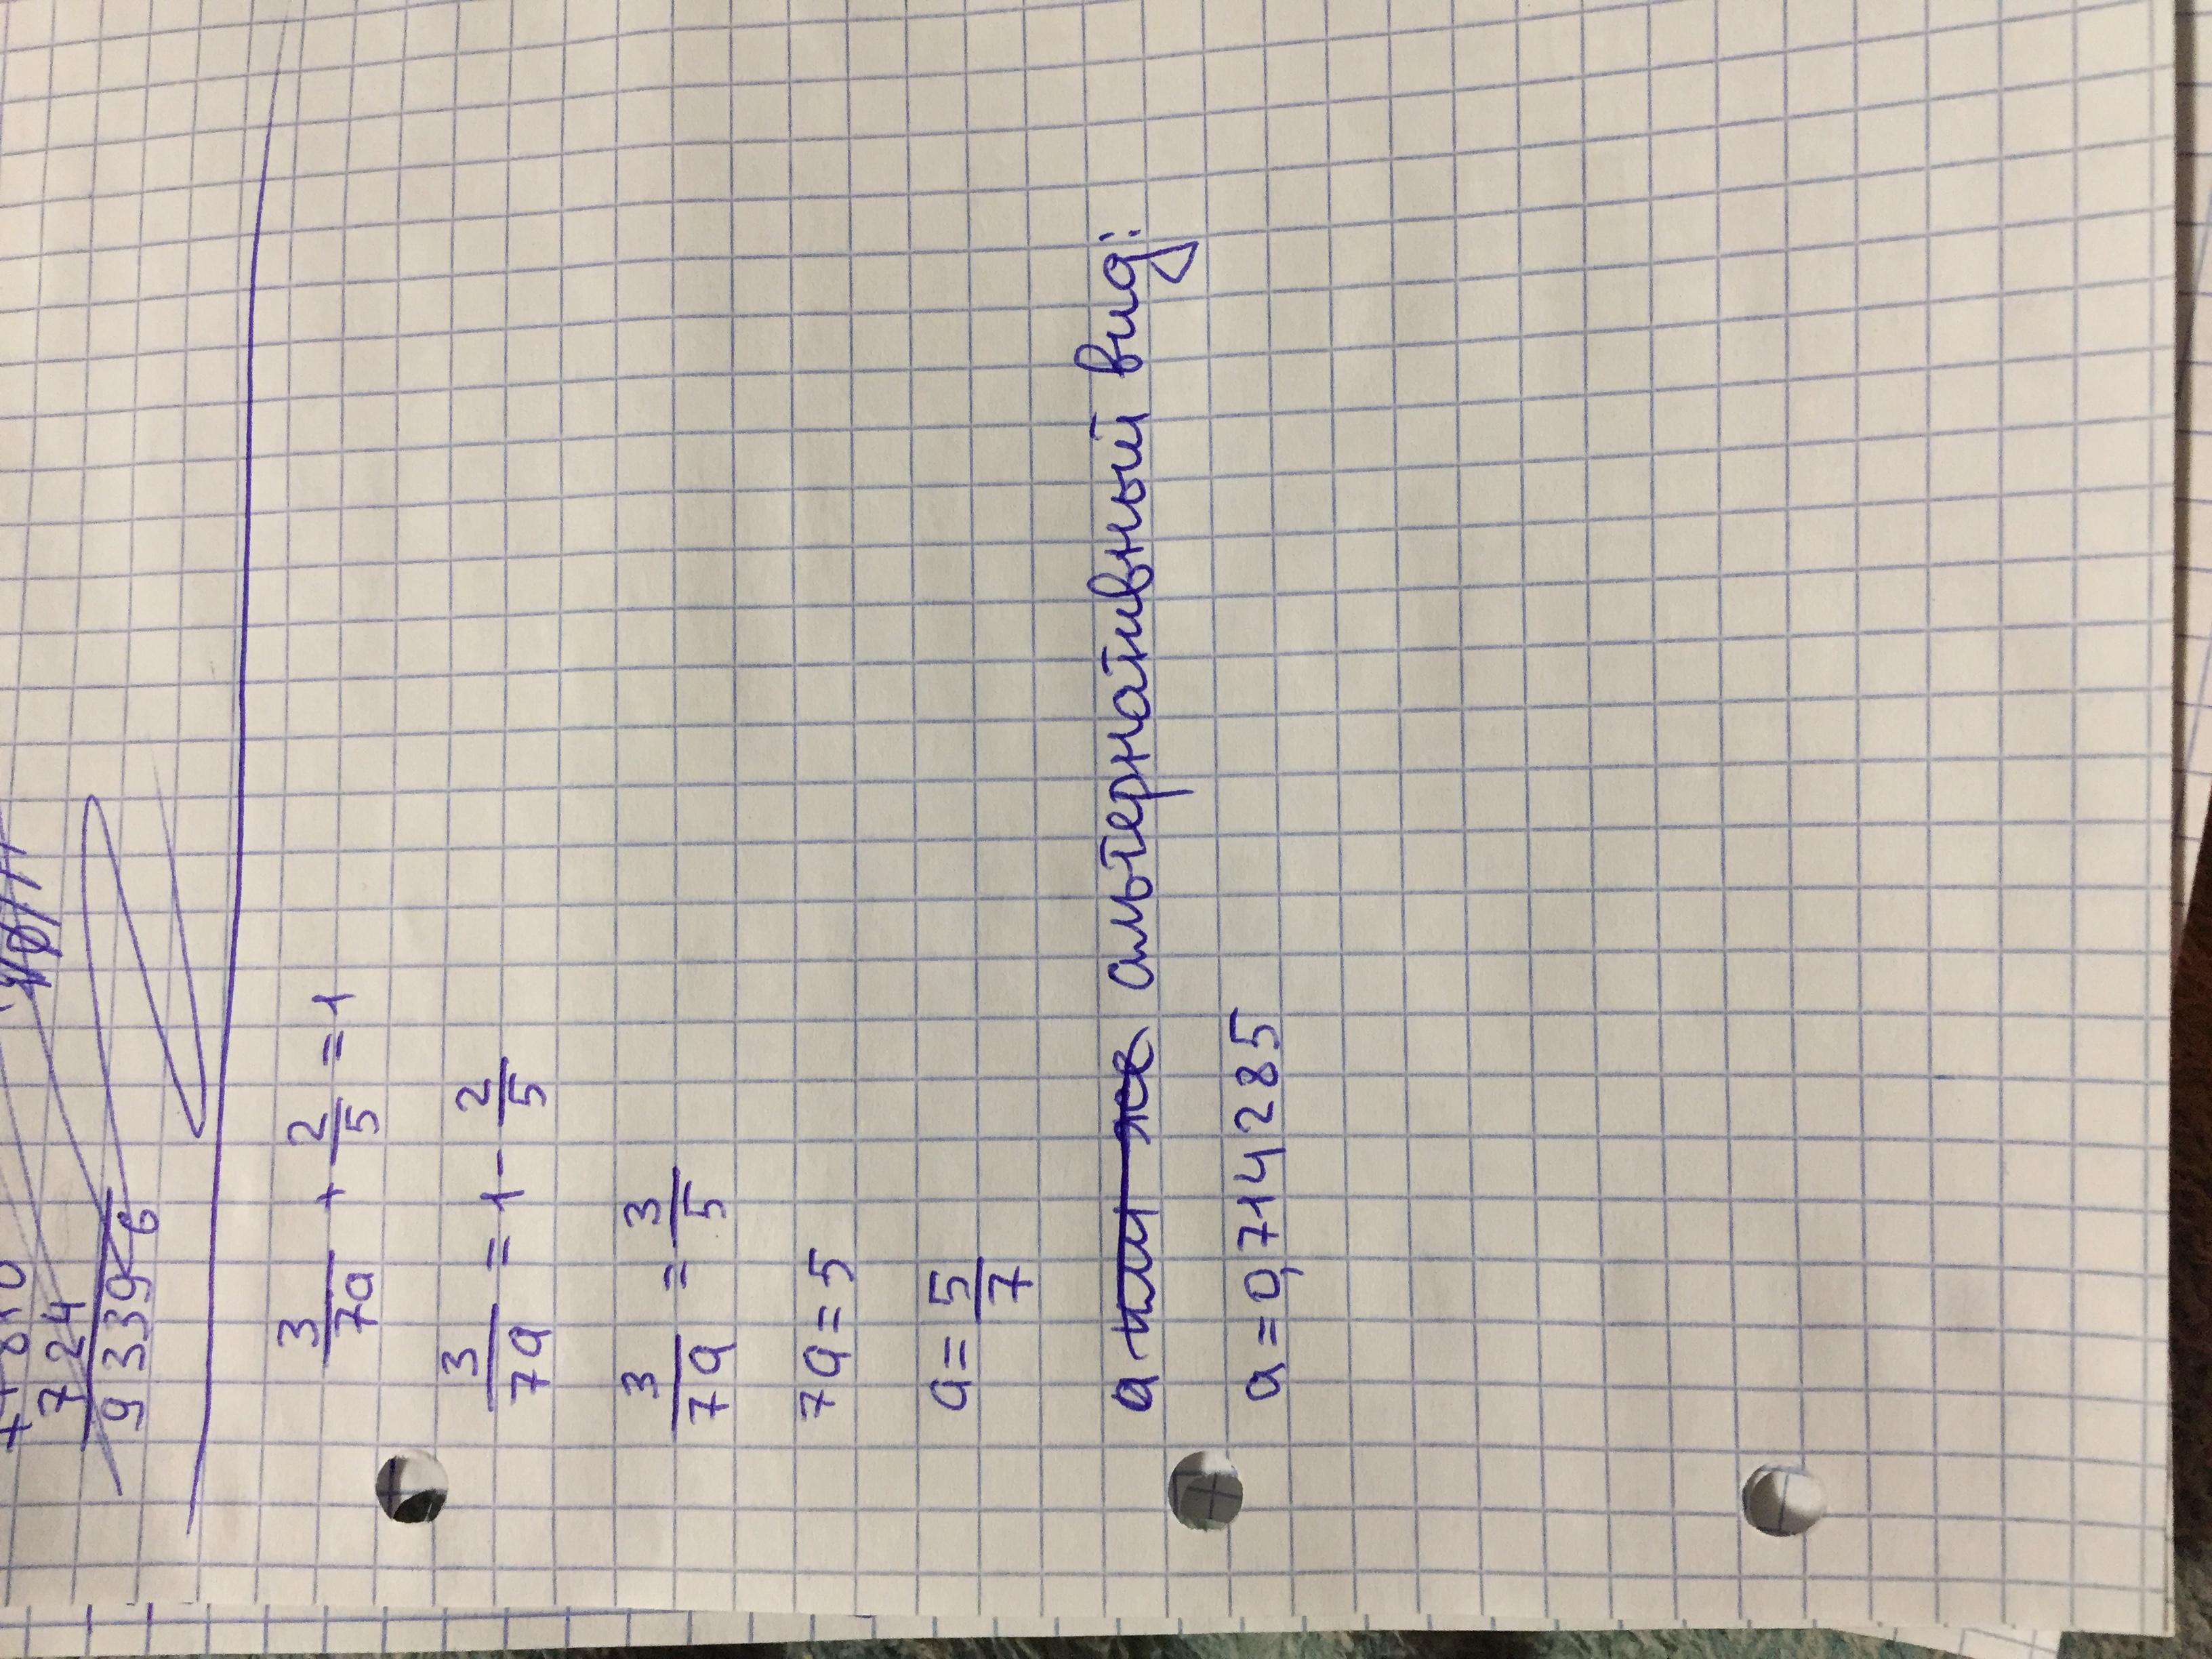 724
93396
3/7a + 2/5 = 1
3/7a = 1 - 2/5
3/7a = 3/5
7a = 5
a = 5/7
альтернативный вид:
a = 0,714285